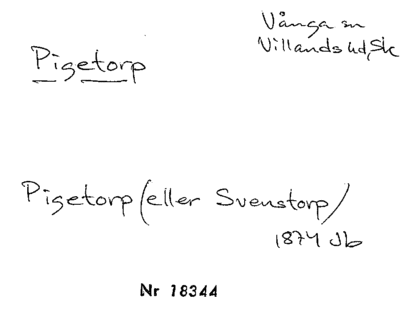 Vånga sn
Villands hd, Sk
Pigetorp
Pigetorp (eller Svenstorp)
1874 Jb
Nr 18344